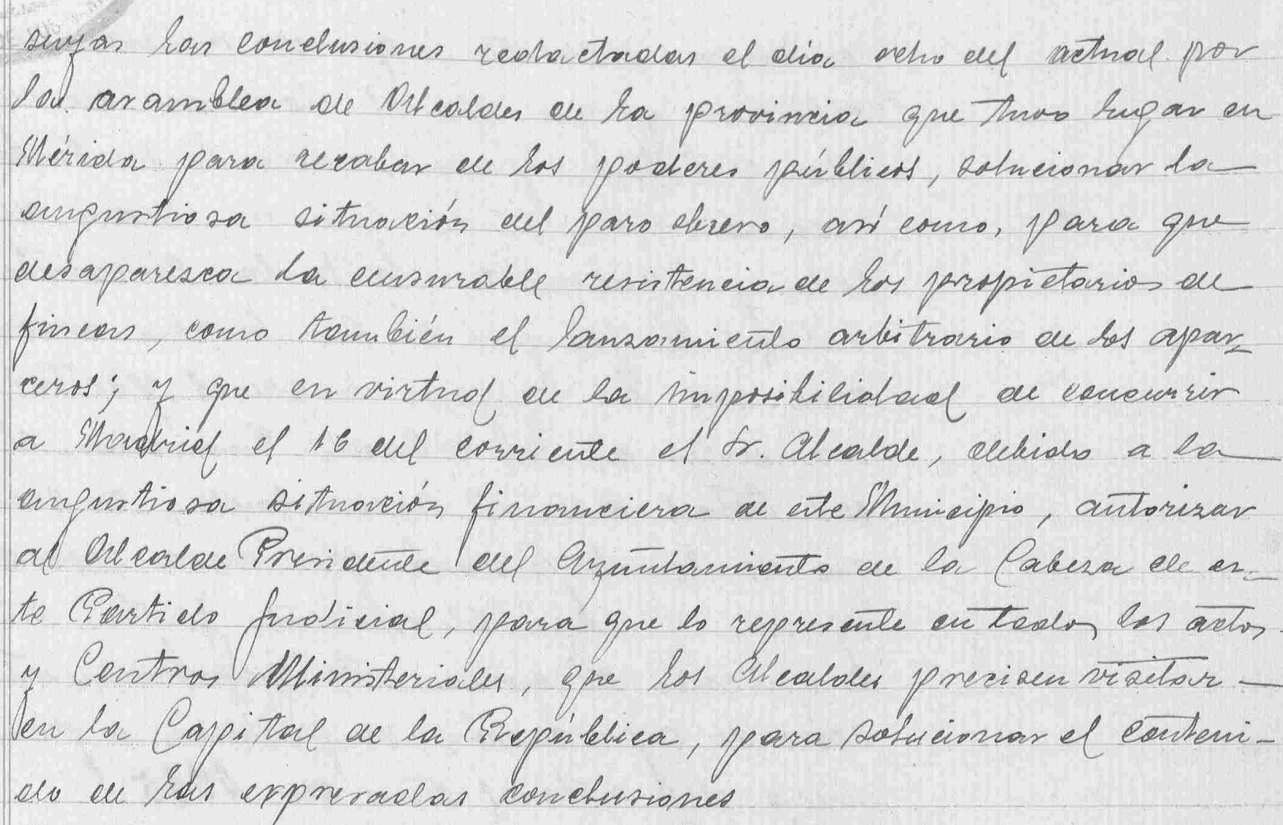 suyas las conclusiones redactadas el día ocho del actual por
la asamblea de Alcaldes de la provincia que tuvo lugar en
Mérida para recabar de los poderes públicos, solucionar la
angustiosa situación del paro obrero, así como, para que
desaparesca la censurable resistencia de los propietarios de
fincas, como también el lanzamiento arbitrario de los apar-
ceros; y que en virtud de la imposibilidad de concurrir
a Madrid el 16 del corriente el Sr. Alcalde, debido a la
angustiosa situación financiera de este Municipio, autorizar
al Alcalde Presidente del Ayuntamiento de la Cabeza de es-
te Partido Judicial, para que lo represente en todos los actos
y Centros Ministeriales, que los Alcaldes precisen visitar
en la Capital de la República, para solucionar el conteni-
do de las expresadas conclusiones